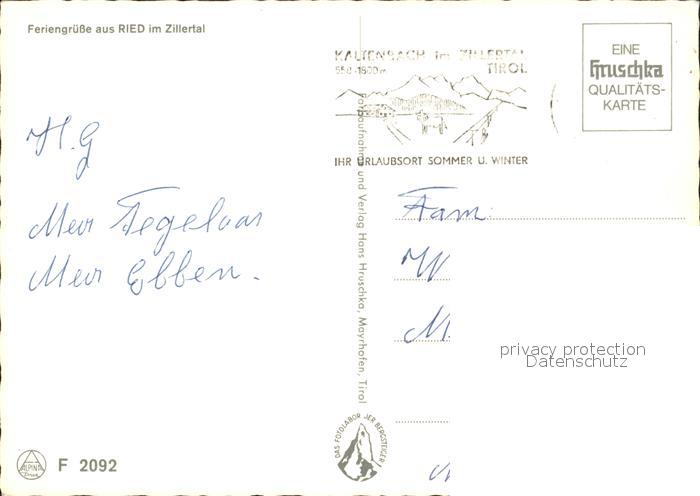 Feriengrüße aus RIED im Zillertal
KALTENBACH im ZILLERTAL
550-1800m TIROL
IHR URLAUBSORT SOMMER U. WINTER
EINE
Hruschka
QUALITÄTS-
KARTE
H.G
Mevr Tegelaar
Mevr Ebben.
Farbaufnahme und Verlag Hans Hruschka, Mayrhofen, Tirol
Fam:
W
M.
privacy protection
Datenschutz
DAS FOTOLABOR DER BERGSTEIGER
ALPINA
F 2092